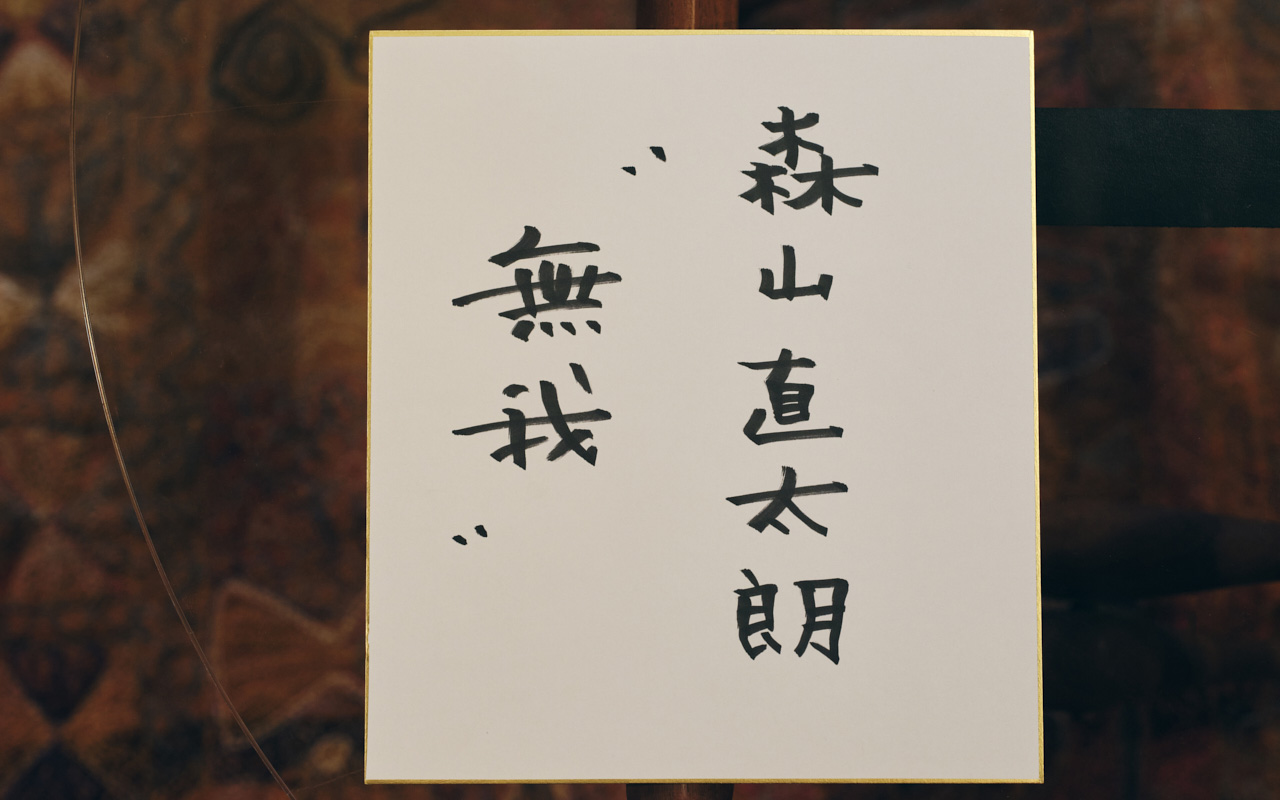 森山直太朗
〝無我〟